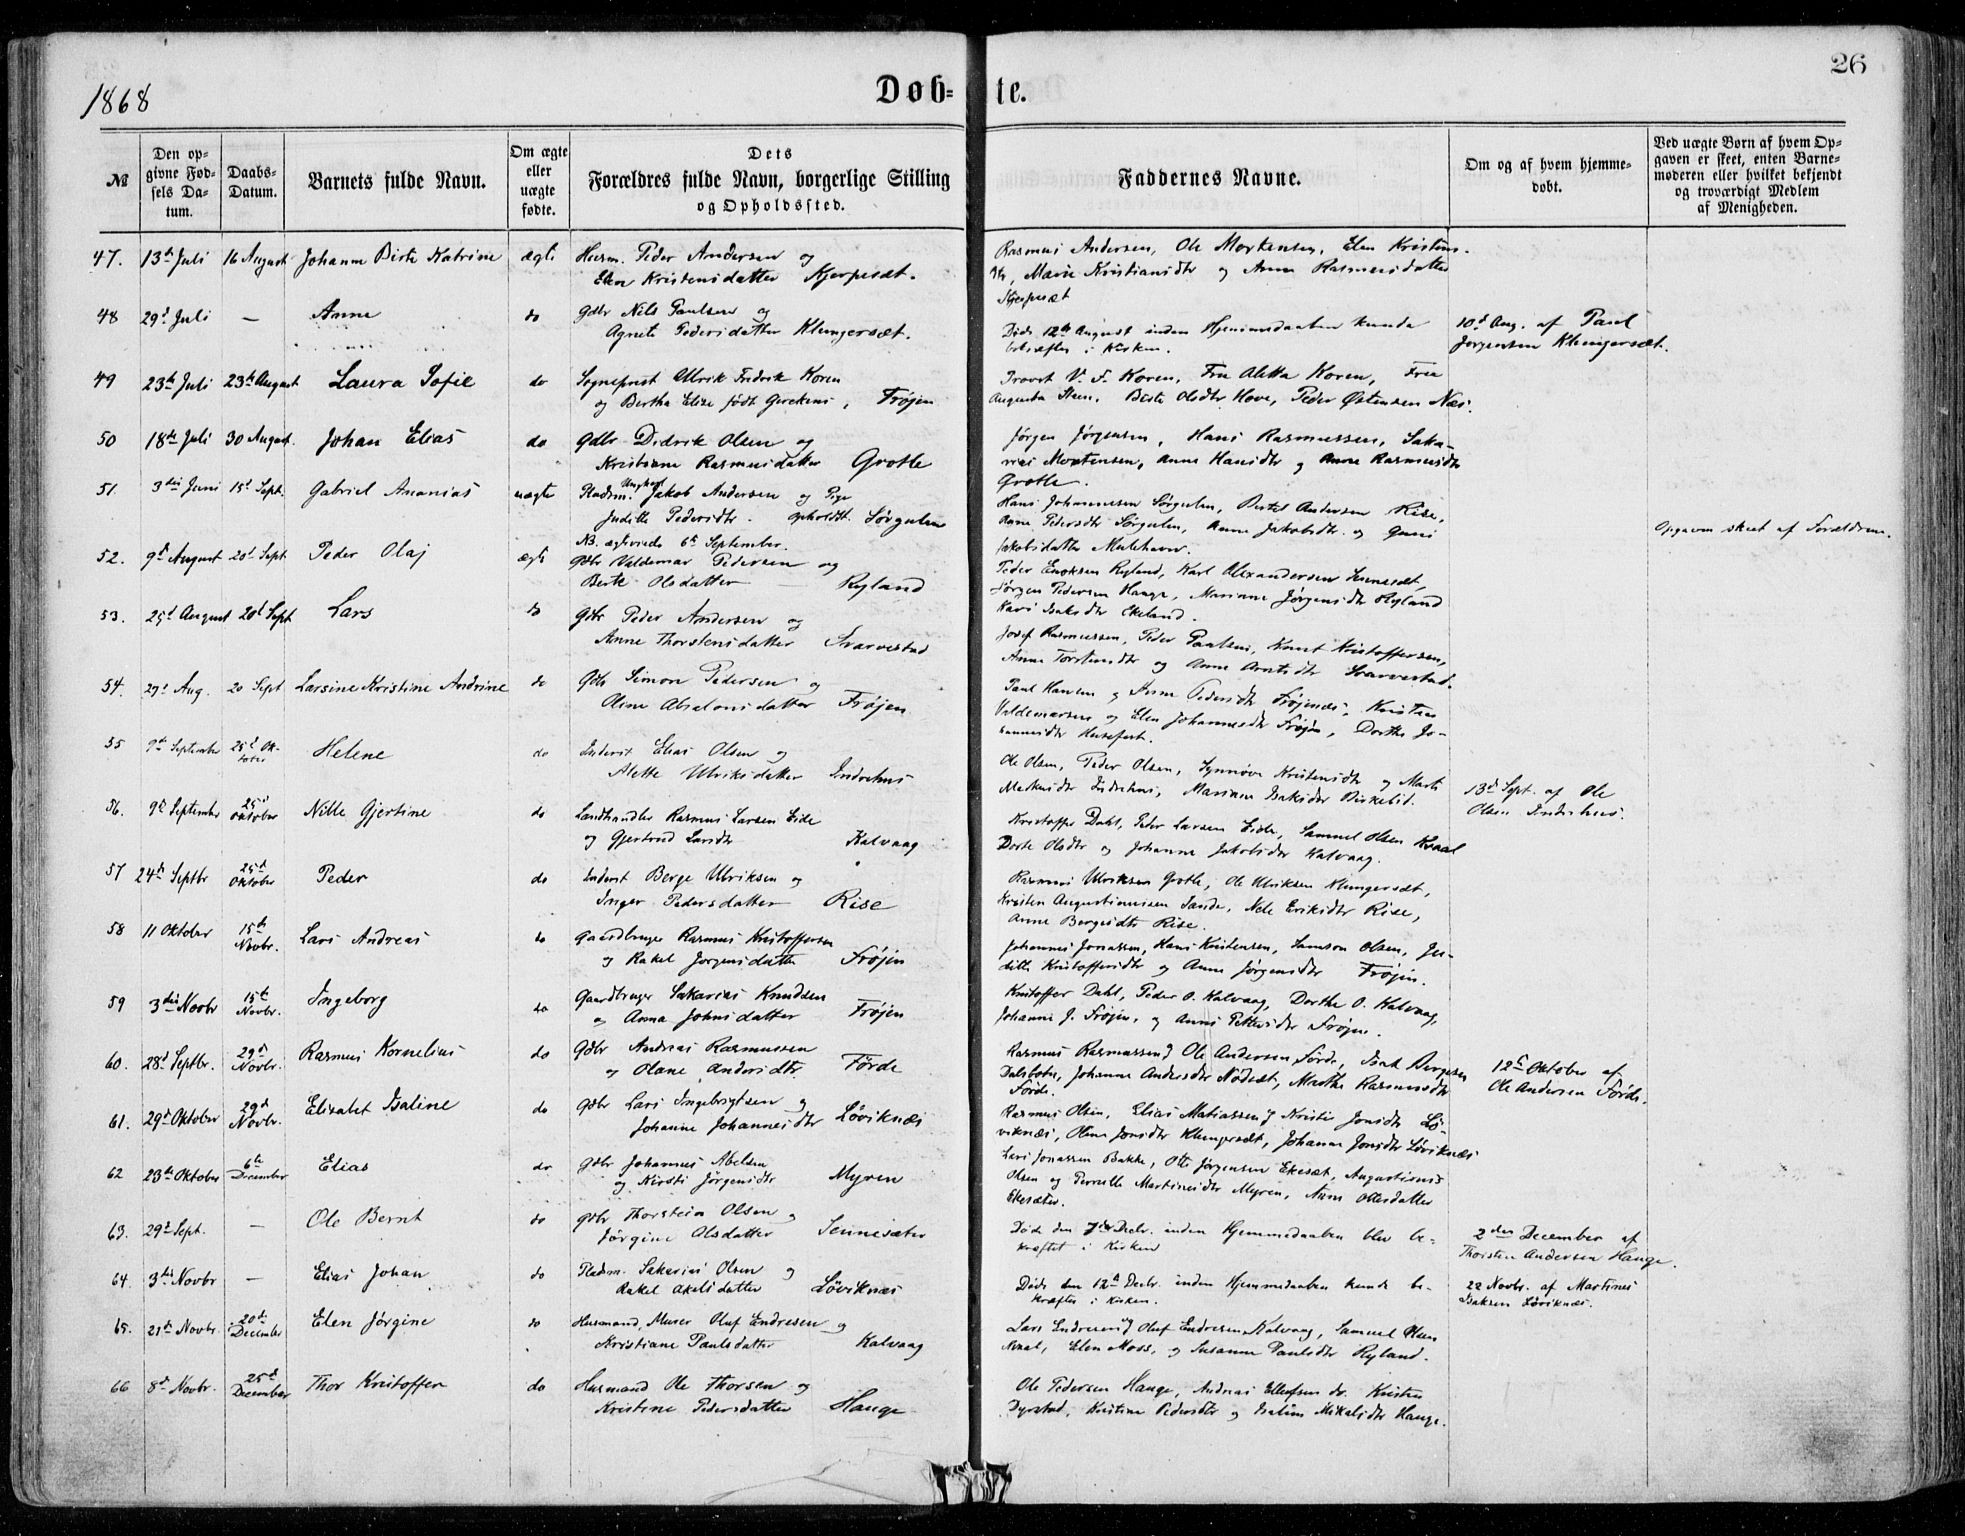 1868
Døb-
te.
26
№
Den op-
givne Fød-
sels Da-
tum.
Daabs-
Datum.
Barnets fulde Navn.
Om ægte
eller
uægte
fødte.
Dets
Forældres fulde Navn, borgerlige Stilling
og Opholdssted.
Faddernes Navne.
Om og af hvem hjemme-
døbt.
Ved uægte Børn af hvem Op-
gaven er skeet, enten Barne-
moderen eller hvilket bekjendt
og troværdigt Medlem
af Menigheden.
47. 13de Juli 16 August Johanne Birte Katrine ægte Husm. Peder Andersen og
Elen Kristensdatter Kjerpesæt.
Rasmus Andersen, Ole Mortensen, Elen Kristens-
dtr, Marie Kristiansdtr og Anne Rasmusdatter
Kjerpesæt
48 29d Juli — Anne do Gdbr Nils Paulsen og
Agnete Pedersdatter Klungersæt.
Døde 12te August inden Hjemmedaaben kunde
bekræftes i Kirken.
10d Aug. af Paul
Jørgensen Klungersæt.
49 23de Juli 23de August Laura Sofie do Sogneprest Ulrik Fredrik Koren
og Bertha Elise født Gerckens, Frøjen
Provst V. F. Koren, Fru Aletta Koren, Frue
Augusta Steen, Birte Olsdtr Hove, Peder Østensen Næs.
50 18de Juli 30 August. Johan Elias do Gdbr Didrik Olsen og
Kristiane Rasmusdatter Grotle
Jørgen Jørgensen, Hans Rasmussen, Saka-
rias Mortensen, Anne Hansdtr og Anne Rasmusdtr
Grotle.
51. 3die Juni 15d Sept. Gabriel Ananias uægte Pladsm. Ungkarl Jakob Andersen og Pige
Judithe Pedersdtr. opholdst. Sørgulen
NB. ægteviede 6te September.
Hans Johannesen Sørgulen, Bertel Andersen Rise,
Anne Pedersdtr Sørgulen, Anne Jakobsdtr og Guri
Jakobsdatter Mulehavn.
Opgaven skeet af Forældrene.
52. 9de August 20d Sept. Peder Olaj ægte Gdbr Valdemar Pedersen og
Berte Olsdatter — Ryland
Peder Enoksen Ryland, Karl Alexandersen Sennesæt,
Jørgen Pedersen Hauge, Mariane Jørgensdtr Ryland
Kari Isaksdtr Ekeland.
53. 25d August 20d Sept Lars do Gdbr Peder Andersen og
Anne Thorstensdatter Svarvestad
Josef Rasmussen, Peder Paulsen, Knut Kristoffersen,
Anne Torstensdtr og Anne Arnesdtr Svarvestad.
54. 29d Aug. 20 Sept Larsine Kristine Andrine do Gdbr Simon Pedersen og
Oline Absalonsdatter Frøjen
Paul Hansen og Anne Pedersdtr Frøjenes, Kristen
Valdemarsen og Elen Johannesdtr Frøjen, Dorthe Jo-
hannesdtr Husefest.
55 9de September 25d Ok-
tober Helene do Inderst Elias Olsen og
Alette Ulriksdatter Indrehus
Ole Olsen, Peder Olsen, Synnøve Kristensdtr og Marte
Markusdtr Indrehus, Mariane Isaksdtr Birkelid.
13de Sept. af Ole
Olsen Indrehus.
56. 9de September 25d
Oktober Nille Gjertine do Landhandler Rasmus Larsen Eide
og Gjertrud Larsdtr Kalvaag
Kristoffer Dahl, Peder Larsen Eide, Samuel Olsen Kvaal
Dorte Olsdtr og Johanne Jakobsdtr Kalvaag.
57 24de Septbr 25d
Oktober Peder do Inderst Børge Ulriksen og
Inger Pedersdatter Rise
Rasmus Ulriksen Grotle, Ole Ulriksen Klungersæt,
Kristen Augustinusen Sande, Nele Eriksdtr Rise,
Anne Børgesdtr Rise.
58 11 Oktober 15de
Novbr. Lars Andreas do Gaardbruger Rasmus Kristoffersen
og Rakel Jørgensdatter Frøjen
Johannes Jonassen, Hans Kristensen, Samson Olsen, Ju-
dithe Kristoffersdtr og Anne Jørgensdtr Frøjen.
59 3die Novbr 15de
Novbr. Ingeborg do Gaardbruger Sakarias Knudsen
og Anna Johnsdatter Frøjen
Kristoffer Dahl, Peder O. Kalvaag, Dorthe O. Kalvaag,
Johanne J. Frøjen, og Anne Pettersdtr Frøjen.
60. 28d Septbr. 29d
Novbr. Rasmus Kornelius do Gdbr Andreas Rasmussen
og Olane Andersdtr. Førde
Rasmus Rasmussen, Ole Andersen Førde, Isak Børgesen
Dalsbotn, Johanne Andersdtr Nødset, Marthe Rasmusdtr
Førde.
12te Oktober af
Ole Andersen Førde.
61. 29de Oktober 29d
Novbr. Elisabet Isaline do Gdbr Lars Ingebrigtsen og
Johanne Johannesdtr Løviknæs
Rasmus Olsen, Elias Matiassen, Kristie Jonsdtr Lø-
viknæs, Oline Jonsdtr Klungersæt, Johanne Jonsdtr Løviknæs
62 23de Oktober 6te
December Elias do Gdbr Johannes Abelsen
og Kirsti Jørgensdtr Myren
Lars Jonassen Bakke, Otte Jørgensen Ekesæt, Augustinus
Olsen og Pernille Martinusdtr Myren, Anne Ottesdatter
Ekesæter.
63. 29d Sept. — Ole Bernt do Gdbr Thorstein Olsen og
Jørgine Olsdatter Sennesæter
Døde den 7de Decbr. inden Hjemmedaaben blev be-
kræftet i Kirken
2den December af
Thorsten Andersen Hauge.
64. 3die Novbr — Elias Johan do Pladsm. Sakarias Olsen og
Rakel Akselsdatter Løviknæs
Døde den 12te Decbr. inden Hjemmedaaben kunde be-
kræftes i Kirken.
22 Novbr. af Martines
Isaksen Løviknæs.
65. 21de Novbr 20de
December Elen Jørgine do Husmand, Murer Oluf Endresen og
Kristiane Paulsdatter Kalvaag
Lars Endresen, Oluf Endresen Kalvaag, Samuel Olsen
Kvaal, Elen Moss, og Susanne Paulsdtr Ryland.
66 8de Novbr. 25d
December Thor Kristoffer do Husmand Ole Thorsen og
Kristine Pedersdatter Hauge
Ole Pedersen Hauge, Andreas Ellefsen do. Kristen
Dyrstad, Kristine Pedersdtr og Isaline Mikalsdtr Hauge.